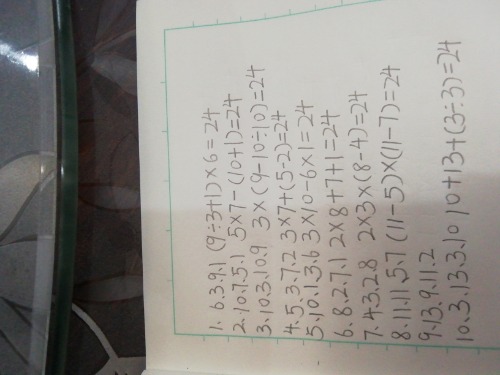 1、6.3.9.1 (9÷3+1)×6=24
2、10.7.5.1 5×7-(10+1)=24
3、10.3.10.9 3×(9-10÷10)=24
4、5.3.7.2 3×7+(5-2)=24
5、10.1.3.6 3×10-6×1=24
6、8.2.7.1 2×8+7+1=24
7、4.3.2.8 2×3×(8-4)=24
8、11.11.5.7 (11-5)×(11-7)=24
9、13.9.11.2
10、3.13.3.10 10+13+(3÷3)=24